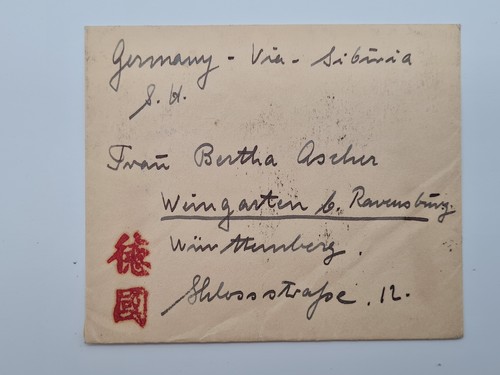 Germany - Via - Sibiria
S. H.
Frau Bertha Ascher
Weingarten b. Ravensburg.
Württemberg.
Schlossstraße. 12.
德國